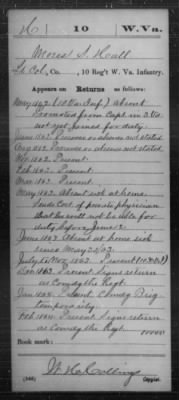 H | 10 | W. Va.
Moses S. Hall
Lt Col, Co. , 10 Reg't W. Va. Infantry.
Appears on Returns as follows:
May 1862 (10 Va Inf.) Absent
Promoted from Capt. in 3 Va.
not yet joined for duty.
June 1862 Presence or absence not stated
Aug 1862 Presence or absence not stated
Nov. 1862. Present.
Feb. 1863. Present.
Mar. 1863. Present.
May 1863. Absent sick at home.
Sends Cert. of private physician
that he will not be able for
duty before June 12
June 1863 Absent at home sick
since May 25/63.
July to Nov. 1863. Present
Dec 1863 Present signs return
as Comdg the Regt.
Jan 1864. Absent Comdg Brig
temporarily.
Feb 1864. Present signs return
as Comdg the Regt.
Book mark:
Copyist.